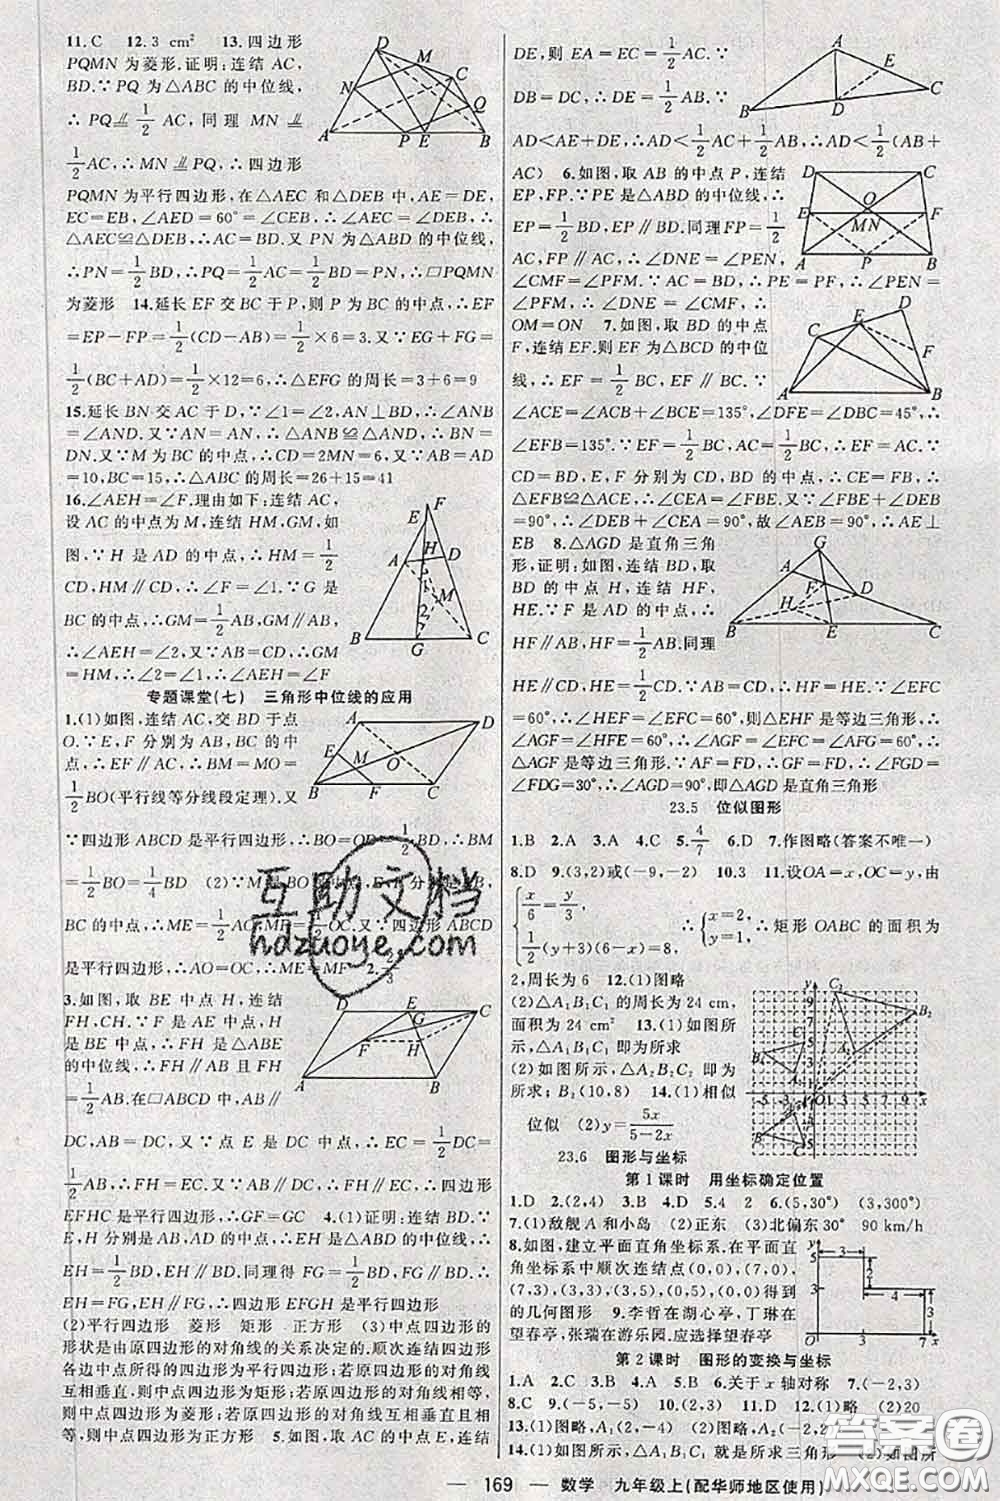 11.C 12.3 cm² 13.四边形
PQMN 为菱形.证明:连结 AC,
BD.∵PQ 为△ABC 的中位线,
∴PQ⫽1/2 AC,同理 MN⫽
1/2 AC,∴MN⫽PQ,∴四边形
PQMN 为平行四边形,在△AEC 和△DEB 中,AE=DE,
EC=EB,∠AED=60°=∠CEB,∴∠AEC=∠DEB,∴
△AEC≌△DEB,∴AC=BD.又 PN 为△ABD 的中位线,
∴PN=1/2 BD,PQ=1/2 AC=1/2 BD=PN,∴▱PQMN
为菱形 14.延长 EF 交 BC 于 P,则 P 为 BC 的中点,∴EF
=EP−FP=1/2(CD−AB)=1/2×6=3.又∵EG+FG=
1/2(BC+AD)=1/2×12=6,∴△EFG 的周长=3+6=9
15.延长 BN 交 AC 于 D,∵∠1=∠2,AN⊥BD,∴∠ANB
=∠AND.又∵AN=AN,∴△ANB≌△AND,∴BN=
DN.又∵M 为 BC 的中点,∴CD=2MN=6,又∵AB=AD
=10,BC=15,∴△ABC 的周长=26+15=41
16.∠AEH=∠F.理由如下:连结 AC,
设 AC 的中点为 M,连结 HM,GM,如
图,∵H 是 AD 的中点,∴HM=1/2
CD,HM∥CD,∴∠F=∠1.∵G 是
BC 的中点,∴GM=1/2 AB,GM∥AB,
∴∠AEH=∠2,又∵AB=CD,∴GM
=HM,∴∠1=∠2,∴∠AEH=∠F
专题课堂(七) 三角形中位线的应用
1.(1)如图,连结 AC,交 BD 于点
O.∵E,F 分别为 AB,BC 的中
点,∴EF∥AC,∴BM=MO=
1/2 BO(平行线等分线段定理).又
∵四边形 ABCD 是平行四边形,∴BO=DO=1/2 BD,∴BM
=1/2 BO=1/4 BD (2)∵M
AC,∴ME=1/2 AO,MF=1/2 OC.又∵四边形 ABCD
是平行四边形,∴AO=OC,∴ME=MF 2.
3.如图,取 BE 中点 H,连结
FH,CH.∵F 是 AE 中点,H
是 BE 中点,∴FH 是△ABE
的中位线,∴FH∥AB 且 FH
=1/2 AB.在▱ABCD 中,AB∥
DC,AB=DC,又∵点 E 是 DC 中点,∴EC=1/2 DC=
1/2 AB,∴FH=EC.又∵AB∥DC,∴FH∥EC,∴四边形
EFHC 是平行四边形,∴GF=GC 4.(1)证明:连结 BD.∵
E,H 分别是 AB,AD 的中点,∴EH 是△ABD 的中位线,∴
EH=1/2 BD,EH∥BD.同理得 FG=1/2 BD,FG∥BD,∴
EH=FG,EH∥FG,∴四边形 EFGH 是平行四边形
(2)平行四边形 菱形 矩形 正方形 (3)中点四边形的
形状是由原四边形的对角线的关系决定的.顺次连结四边形
各边中点所得的四边形为平行四边形;若原四边形的对角线
互相垂直,则中点四边形为矩形;若原四边形的对角线相等,
则中点四边形为菱形;若原四边形的对角线互相垂直且相
等,则中点四边形为正方形 5.如图,取 AC 的中点 E,连结
DE,则 EA=EC=1/2 AC.∵
DB=DC,∴DE=1/2 AB.∵
AD<AE+DE,∴AD<1/2 AC+1/2 AB,∴AD<1/2(AB+
AC) 6.如图,取 AB 的中点 P,连结
EP,FP.∵PE 是△ABD 的中位线,∴
EP=1/2 BD,EP∥BD.同理 FP=1/2
AC,FP∥AC,∴∠DNE=∠PEN,
∠CMF=∠PFM.∵AC=BD,∴PE=PF,∴∠PEN=
∠PFM,∴∠DNE=∠CMF,∴
OM=ON 7.如图,取 BD 的中点
F,连结 EF.则 EF 为△BCD 的中位
线,∴EF=1/2 BC,EF∥BC.∵
∠ACE=∠ACB+∠BCE=135°,∠DFE=∠DBC=45°,∴
∠EFB=135°.∵EF=1/2 BC,AC=BC,∴EF=AC.∵
∠CEB=90°,E,F 分别为 CD,BD 的中点,∴CE=FB,∴
△EFB≌△ACE,∴∠CEA=∠FBE.又∵∠FBE+∠DEB
=90°,∴∠DEB+∠CEA=90°,故∠AEB=90°,∴AE⊥
EB 8.△AGD 是直角三角
形,证明:如图,连结 BD,取
BD 的中点 H,连结 HF,
HE.∵F 是 AD 的中点,∴
HF∥AB,HF=1/2 AB.同理
HE∥CD,HE=1/2 CD.∵AB=CD,∴HF=HE.∵∠EFC
=60°,∴∠HEF=∠EFC=60°,则△EHF 是等边三角形,∴
∠AGF=∠HFE=60°.∵∠EFC=60°,∴∠AFG=60°,∴
△AGF 是等边三角形.∵AF=FD,∴GF=FD,∴∠FGD=
∠FDG=30°,∴∠AGD=90°,即△AGD 是直角三角形
23.5 位似图形
1.B 2.A 3.A 4.C 5.4/7 6.D 7.作图略(答案不唯一)
8.D 9.(3,2)或(−9,−2) 10.3 11.设OA=x,OC=y,由
x/6=y/3,
1/2(y+3)(6−x)=8,
∴ x=2, y=1, ∴矩形 OABC 的面积为
2,周长为 6 12.(1)图略
(2)△A₁B₁C₁ 的周长为 24 cm,
面积为 24 cm² 13.(1)如图所
示,△A₁B₁C₁ 即为所求
(2)如图所示,△A₂B₂C₂ 即为
所求;B₂(10,8) 14.(1)相似
位似 (2)y=5x/(5−2x)
23.6 图形与坐标
第1课时 用坐标确定位置
1.D 2.(2,4) 3.B 4.D 5.4 2 6.(5,30°) (3,300°)
7.(1)敌舰 A 和小岛 (2)正东 (3)北偏东30° 90 km/h
8.如图,建立平面直角坐标系.在平面直
角坐标系中顺次连结点(0,0),(7,0),
(7,3),(3,3),(3,5),(0,5),(0,0)得到
的几何图形 9.李哲在湖心亭,丁琳在
望春亭,张瑞在游乐园.应选择望春亭
第2课时 图形的变换与坐标
1.A 2.C 3.B 4.A 5.B 6.关于 x 轴对称 7.(−2,3)
8.C 9.(−5,−5) 10.C 11.D 12.(1)略 (2)20
13.(1)图略,A₁(2,−4) (2)图略,A₂(−2,4)
14.(1)如图所示,△A₁B₁C₁ 就是所求三角形 (2)如图所
— 169 — 数学 九年级上(配华师地区使用)
互助文档
hdzuoye.com
答案圈
MXQE.COM